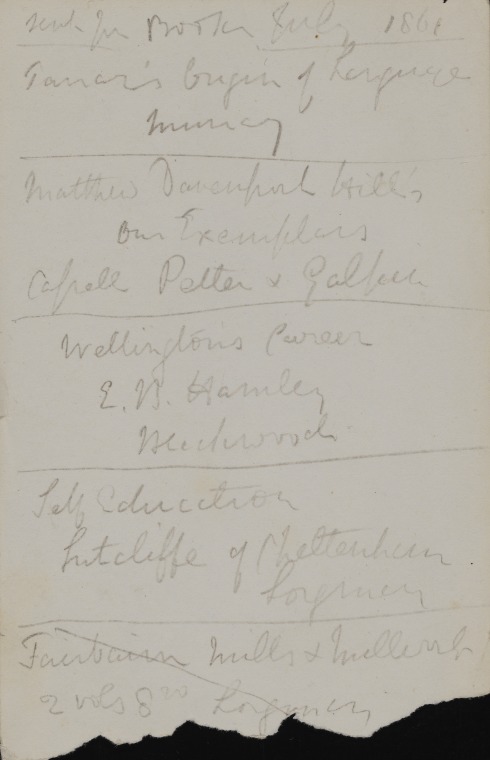 sent for Books July 1861
Farrar's Origin of Language
Murray
Matthew Davenport Hill's
Our Exemplars
Cassell Petter & Galpin
Wellington's Career
E. B. Hamley
Blackwood
Self Education
Sutcliffe of Cheltenham
Longman
Fairbairn Mills & Millwork
2 vols 8vo Longman